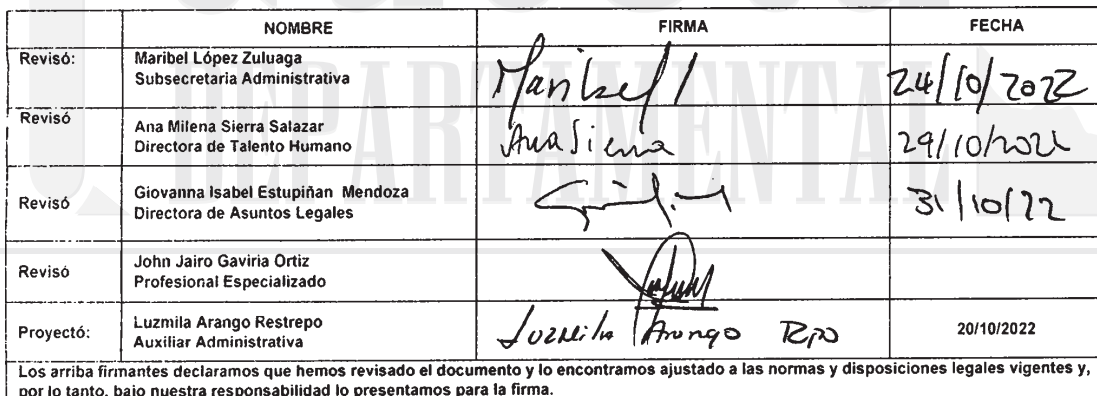 NOMBRE FIRMA FECHA
Revisó: Maribel López Zuluaga
Subsecretaria Administrativa Maribel 24/10/2022
Revisó Ana Milena Sierra Salazar
Directora de Talento Humano Ana Sierra 29/10/2022
Revisó Giovanna Isabel Estupiñan Mendoza
Directora de Asuntos Legales 31/10/22
Revisó John Jairo Gaviria Ortiz
Profesional Especializado
Proyectó: Luzmila Arango Restrepo
Auxiliar Administrativa Luzmila Arango Rpo 20/10/2022
Los arriba firmantes declaramos que hemos revisado el documento y lo encontramos ajustado a las normas y disposiciones legales vigentes y,
por lo tanto, bajo nuestra responsabilidad lo presentamos para la firma.
DEPARTAMENTAL